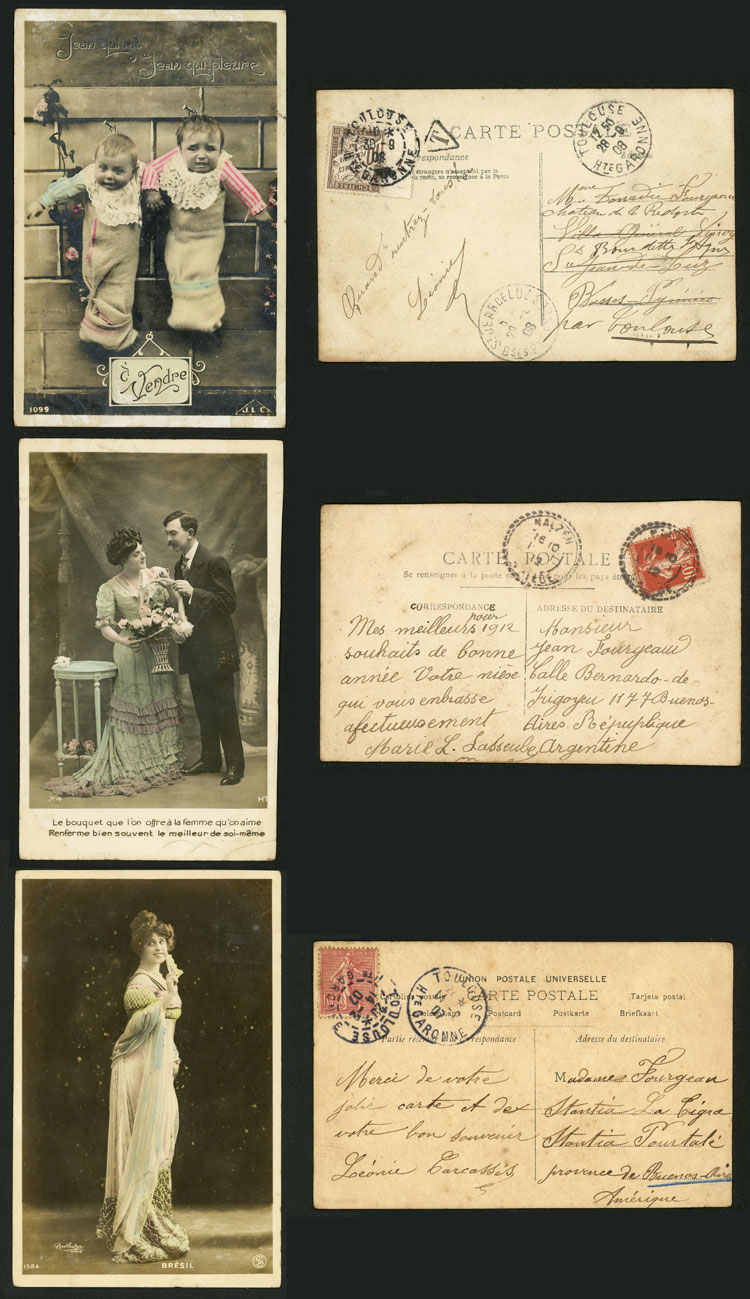 Jean qui rit
Jean qui pleure
à Vendre
1099
J.L.C.
CARTE POSTALE
Correspondance
TOULOUSE
HTE GARONNE
T
TOULOUSE
28 -9
08
HTE GARONNE
Quand rentrez vous?
Léonie
Mme
Château de la
Villa
St Jean de Luz
Basses Pyrénées
par Toulouse
CARTE POSTALE
Se renseigner à la poste
pour les pays
CORRESPONDANCE
ADRESSE DU DESTINATAIRE
NALZEN
ARIEGE
Mes meilleurs pour 1912
souhaits de bonne
année Votre nièse
qui vous enbrasse
afectueusement
Marie L. Lasseube
Monsieur
Jean Fourgeaud
Calle Bernardo-de-
Irigoyen 1177 Buenos-
Aires. République
Argentine
Le bouquet que l'on offre à la femme qu'on aime
Renferme bien souvent le meilleur de soi-même
UNION POSTALE UNIVERSELLE
CARTE POSTALE
Tarjeta postal
Postcard
Postkarte
Briefkaart
Correspondance
Adresse du destinataire
TOULOUSE
HTE GARONNE
TOULOUSE
Merci de votre
jolie carte et de
votre bon souvenir
Léonie Carcassès
Madame Fourgeau
Stantia La Tigra
Stantia Tourtalé
province de Buenos-Aire
Amérique
1584
BRÉSIL